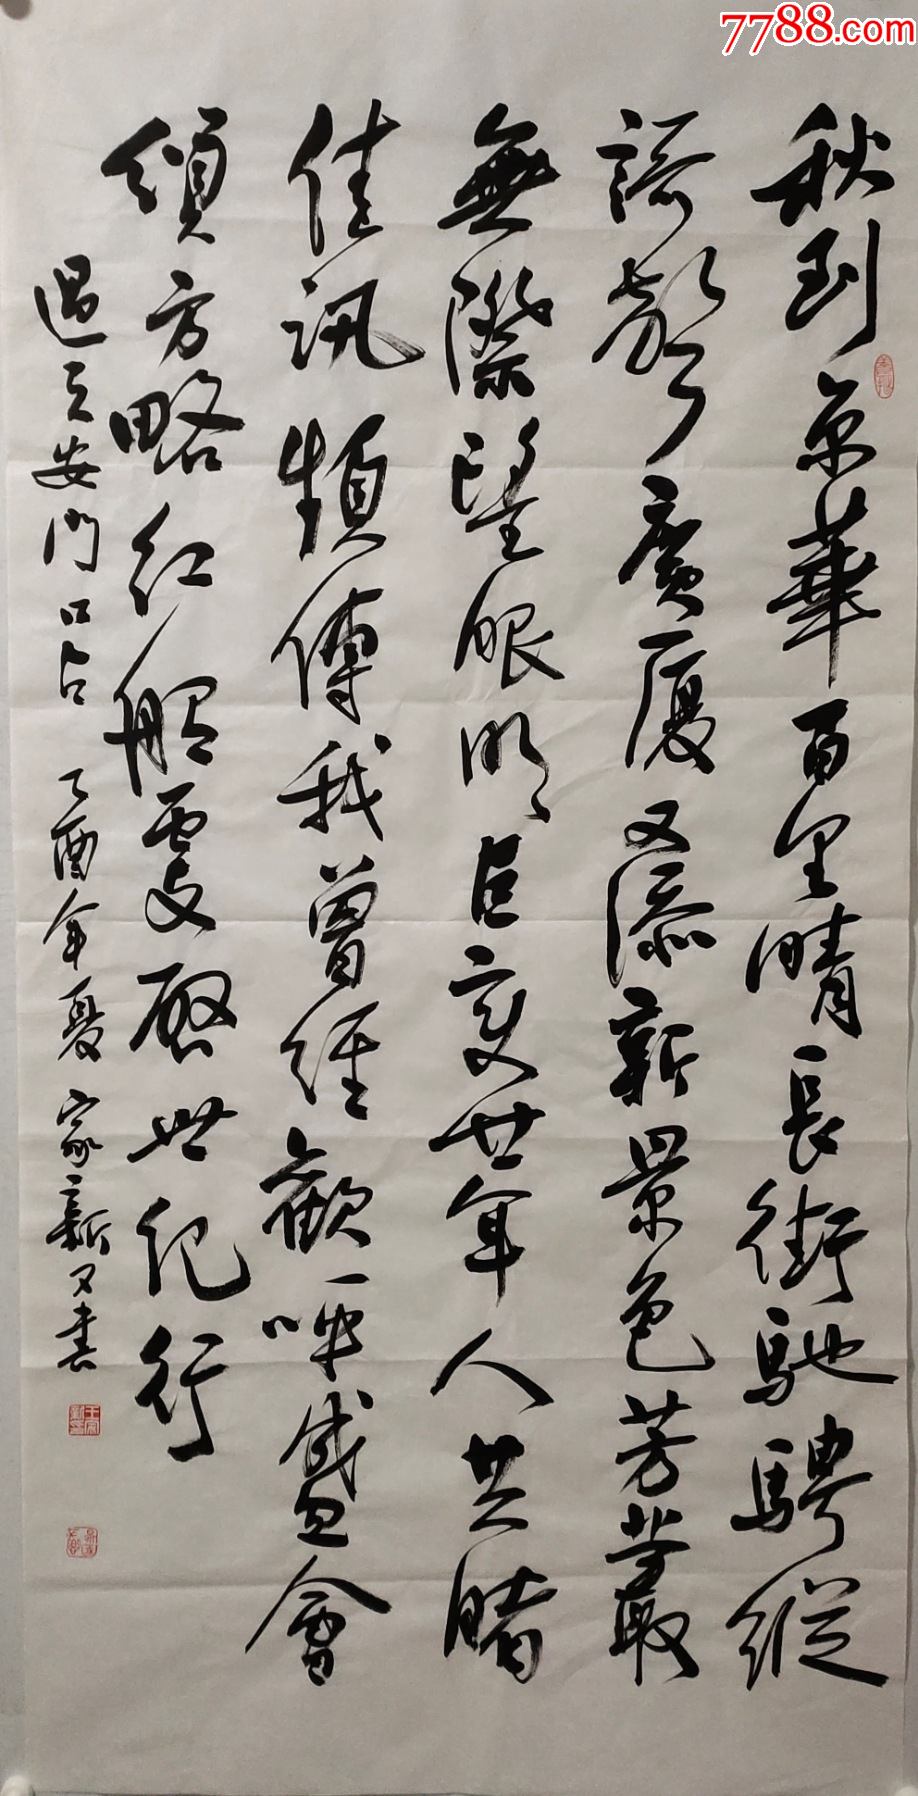 7788.com
秋到京華百里晴長街馳騁縱
語聲廣厦又添新景色芳叢
無際望眼明巨變廿年人共睹
佳訊頻傳我曾經歡呼盛會
頌方略紅船更啟世紀行
過天安門口占 乙酉年夏 家新又書